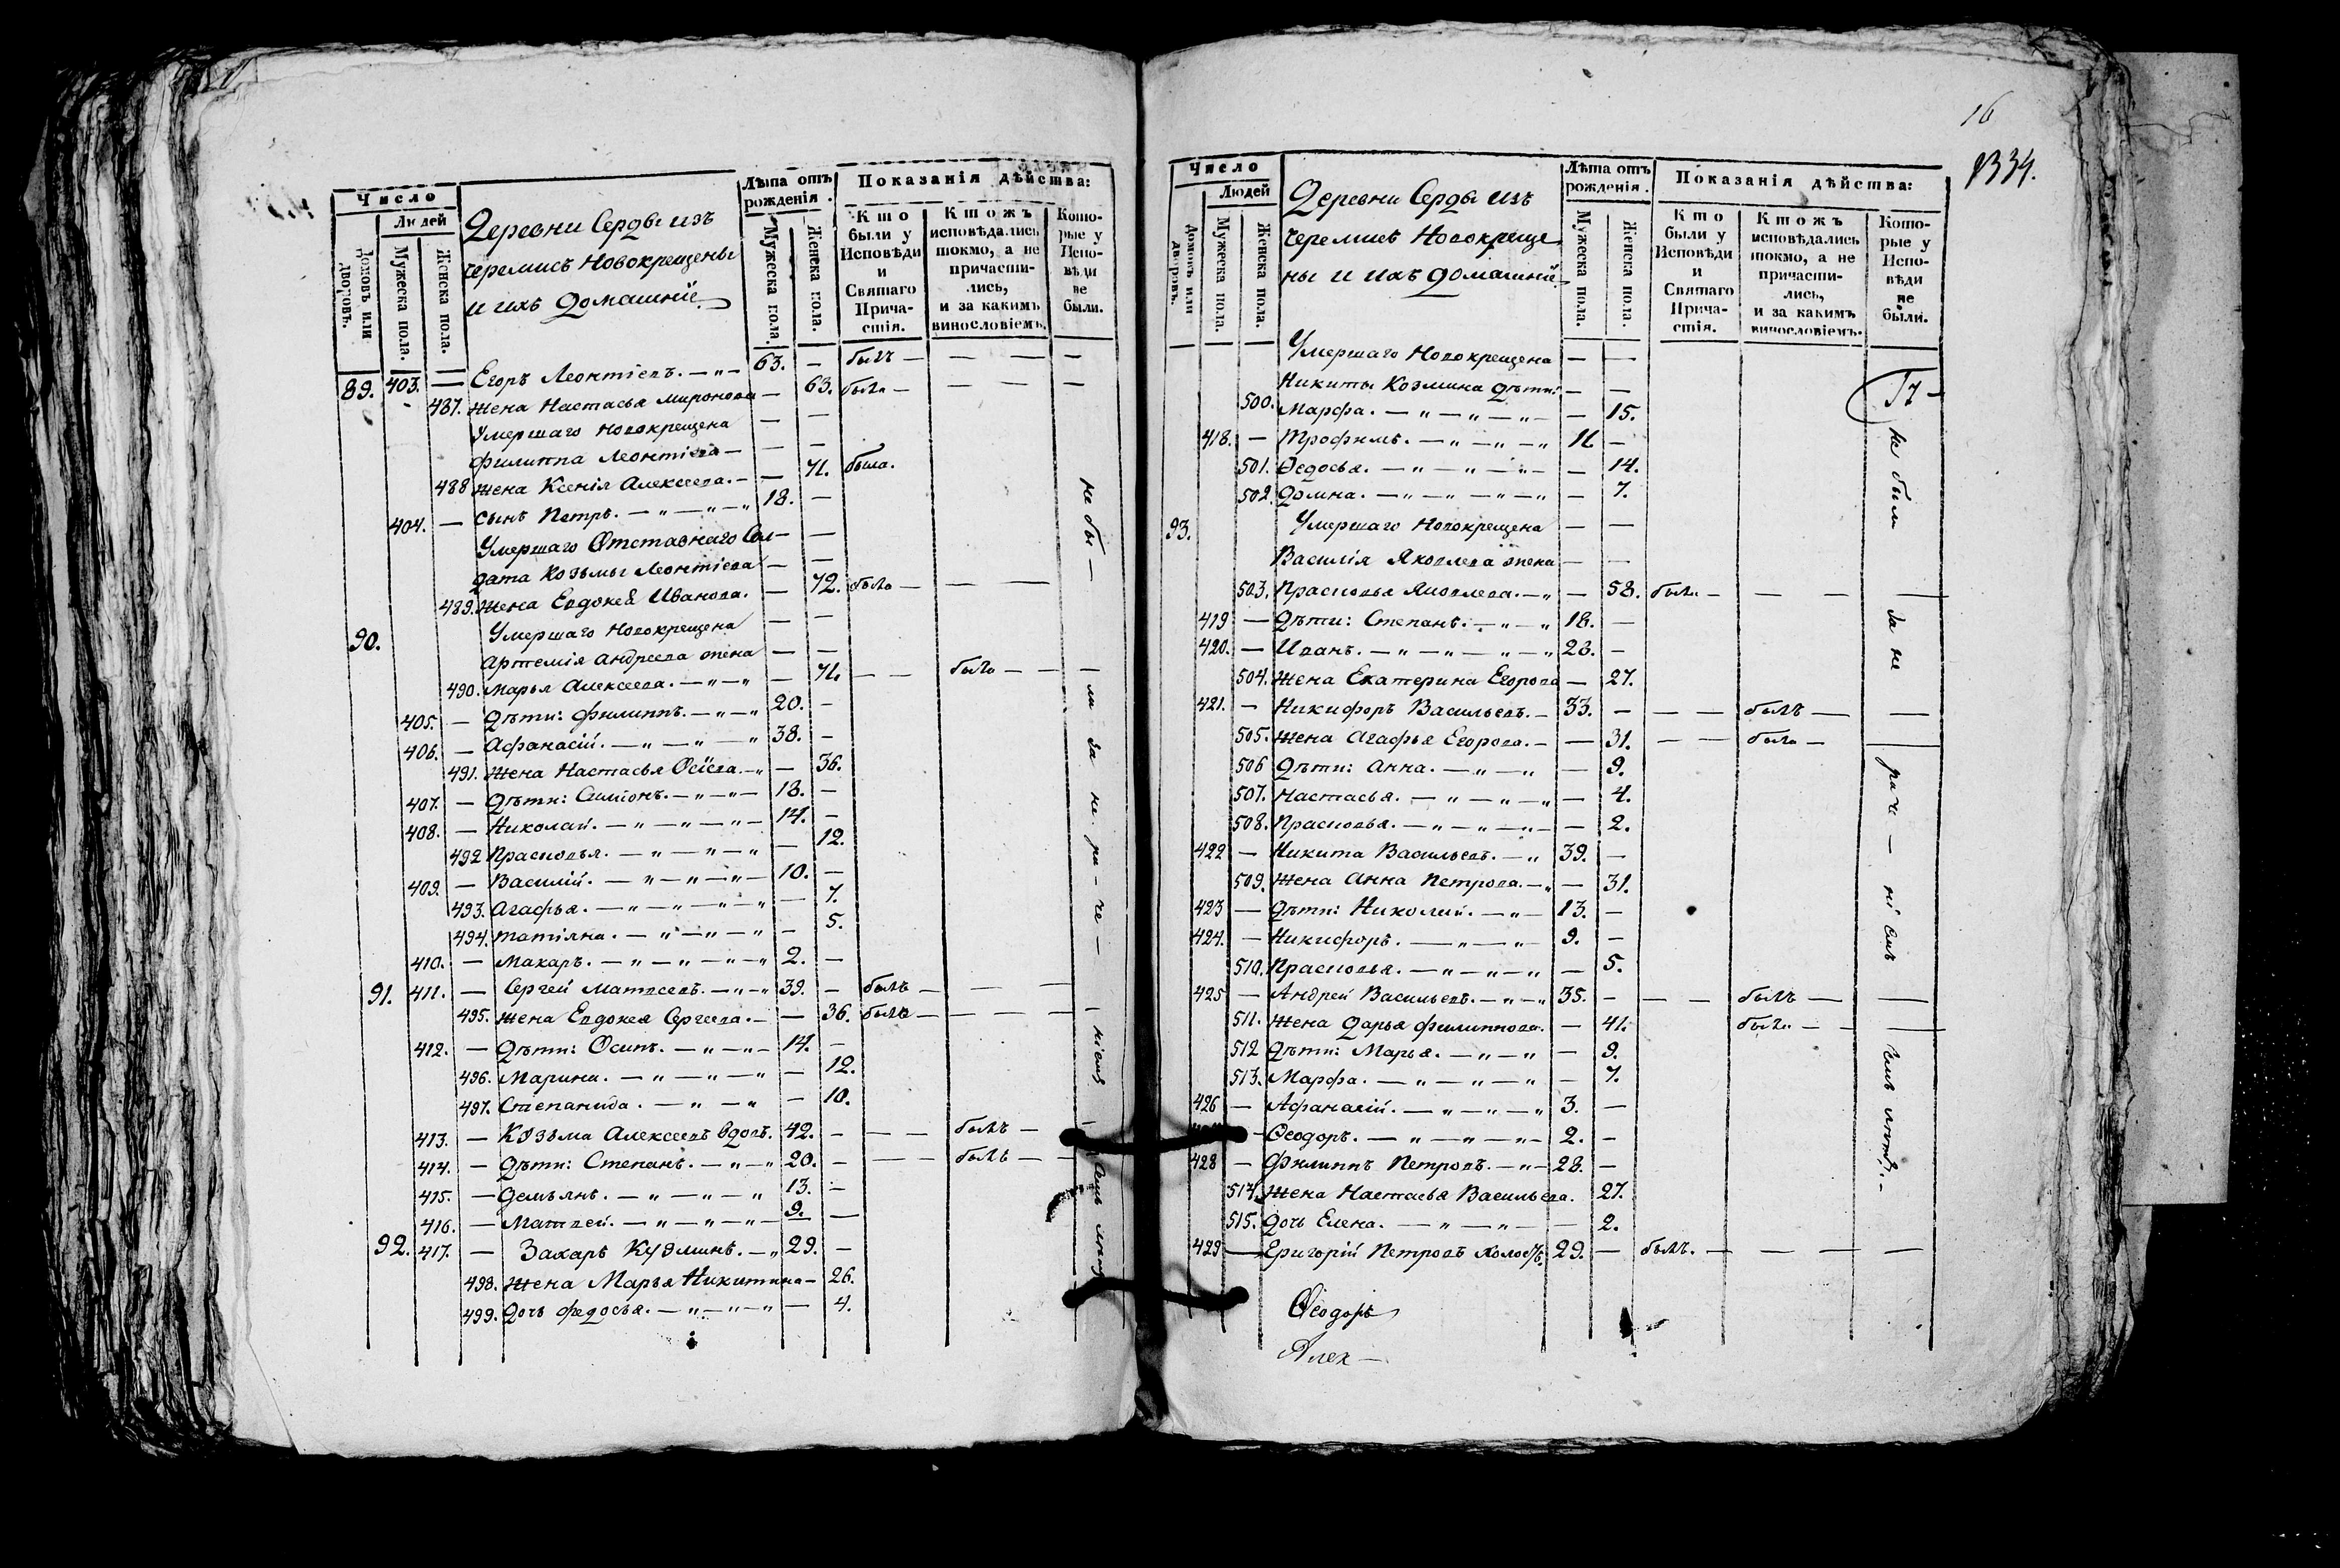 Число
Людей
Домовъ или дворовъ.
Мужеска пола.
Женска пола.
Деревни Серды изъ
черемисъ Новокрещены
и ихъ домашнїе
Лѣта отъ рожденія.
Мужеска пола.
Женска пола.
Показанія дѣйства:
Кто были у Исповѣди и Святаго Причастія.
Ктожъ исповѣдались токмо, а не причастились, и за какимъ винословіемъ.
Которые у Исповѣди не были.
89. 403. — Егоръ Леонтіевъ. — „ — 63. — былъ — — — —
487. жена Настасья Миронова — 63. была — — — —
Умершаго Новокрещена — —
Филиппа Леонтіева — — —
488 жена Ксенія Алексеева. — — 71. была.
404. — сынъ Петръ. — „ — „ — „ 18. —
Умершаго Отставнаго Сол — —
дата Козьмы Леонтіева — —
489. жена Евдокея Иванова. — 72. была — — —
90. Умершаго Новокрещена — —
Артемія Андреева жена — —
490. Марья Алексеева. — „ — „ — 71. — — была — — —
405. — дѣти: Филиппъ. — „ — „ 20. —
406. — Афанасій. — „ — „ — „ 38. —
491. жена Настасья Осіева. — „ — 36.
407. — дѣти: Симіонъ. — „ — „ — 18. —
408. — Николай. — „ — „ — „ — 14. —
492 Прасковья. — „ — „ — „ — 12.
409. — Василій. — „ — „ — „ — 10. —
493. Агафья. — „ — „ — „ — „ — 7.
494. Татіяна. — „ — „ — „ — 5.
410. — Макаръ. — „ — „ — „ — „ 2. —
91. 411. — Сергей Матвеевъ. — „ — „ 39. — былъ — — —
495. жена Евдокея Сергеева. — — 36. была — — — —
412. — дѣти: Осипъ. — „ — „ — 14. —
496. Марина. — „ — „ — „ — 12.
497. Степанида. — „ — „ — 10.
413. — Козьма Алексеевъ вдовъ. 42. — — — былъ —
414. — дѣти: Степанъ. — „ — „ 20. — — — былъ — —
415. — Демьянъ. — „ — „ — „ 13. —
416. — Матвей. — „ — „ — „ — 9. —
92. 417. — Захаръ Кузминъ. — „ 29. —
498. жена Марья Никитина — 26.
499. дочь Федосья. — „ — „ — „ — 4.
не бы — ли за не ра — че — ніемъ
16
Число
Людей
Домовъ или дворовъ.
Мужеска пола.
Женска пола.
Деревни Серды изъ
черемисъ Новокреще
ны и ихъ домашнїе
Лѣта отъ рожденія.
Мужеска пола.
Женска пола.
Показанія дѣйства:
Кто были у Исповѣди и Святаго Причастія.
Ктожъ исповѣдались токмо, а не причастились, и за какимъ винословіемъ.
Которые у Исповѣди не были.
Умершаго Новокрещена — —
Никиты Козмина дѣти: — —
500. Марфа. — „ — „ — „ — — 15.
418. — Трофимъ. — „ — „ — „ 11. —
501. Федосья. — „ — „ — „ — — 14.
502. Домна. — „ — „ — „ — „ — 7.
93. Умершаго Новокрещена — —
Василія Яковлева жена — —
503. Прасковья Яковлева. — „ — 58. была — — — —
419 — Дѣти: Степанъ. — „ — „ 18. —
420. — Иванъ. — „ — „ — „ — „ 23. —
504. жена Екатерина Егорова — 27.
421. — Никифоръ Васильевъ. — 33. — — — былъ — —
505. жена Агафья Егорова. — — 31. — — была — —
506 дѣти: Анна. — „ — „ — 9.
507. Настасья. — „ — „ — „ — 4.
508. Прасковья. — „ — „ — „ — — 2.
422 — Никита Васильевъ. — „ 39. —
509. жена Анна Петрова. — „ — 31.
423 — Дѣти: Николай. — „ — 13. —
424. — Никифоръ. — „ — „ — 9. —
510. Прасковья. — „ — „ — „ — 5.
425 — Андрей Васильевъ. — „ — „ 35. — — — былъ — —
511. жена Дарья Филиппова. — 41. была — — —
512 Дѣти: Марья. — „ — „ — 9.
513. Марфа. — „ — „ — „ — 7.
426 — Афанасій. — „ — „ — „ 3. —
— Ѳеодоръ. — „ — „ — „ — 2. —
428 — Филиппъ Петровъ. — „ — 28. —
514. жена Настасья Васильева. 27.
515. дочь Елена. — „ — „ — — 2.
429 — Григорій Петровъ холос. 29. — былъ. — — — —
не были за не раче — ніемъ
Ѳеодоръ
Алек —